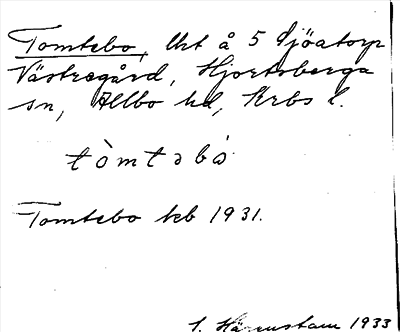 Tomtebo, Urt å 5 Sjöatorp
Västregård, Hjortsberga
sn, Allbo hd, Krbs l.
tòmtəbó
Tomtebo keb 1931.
1933